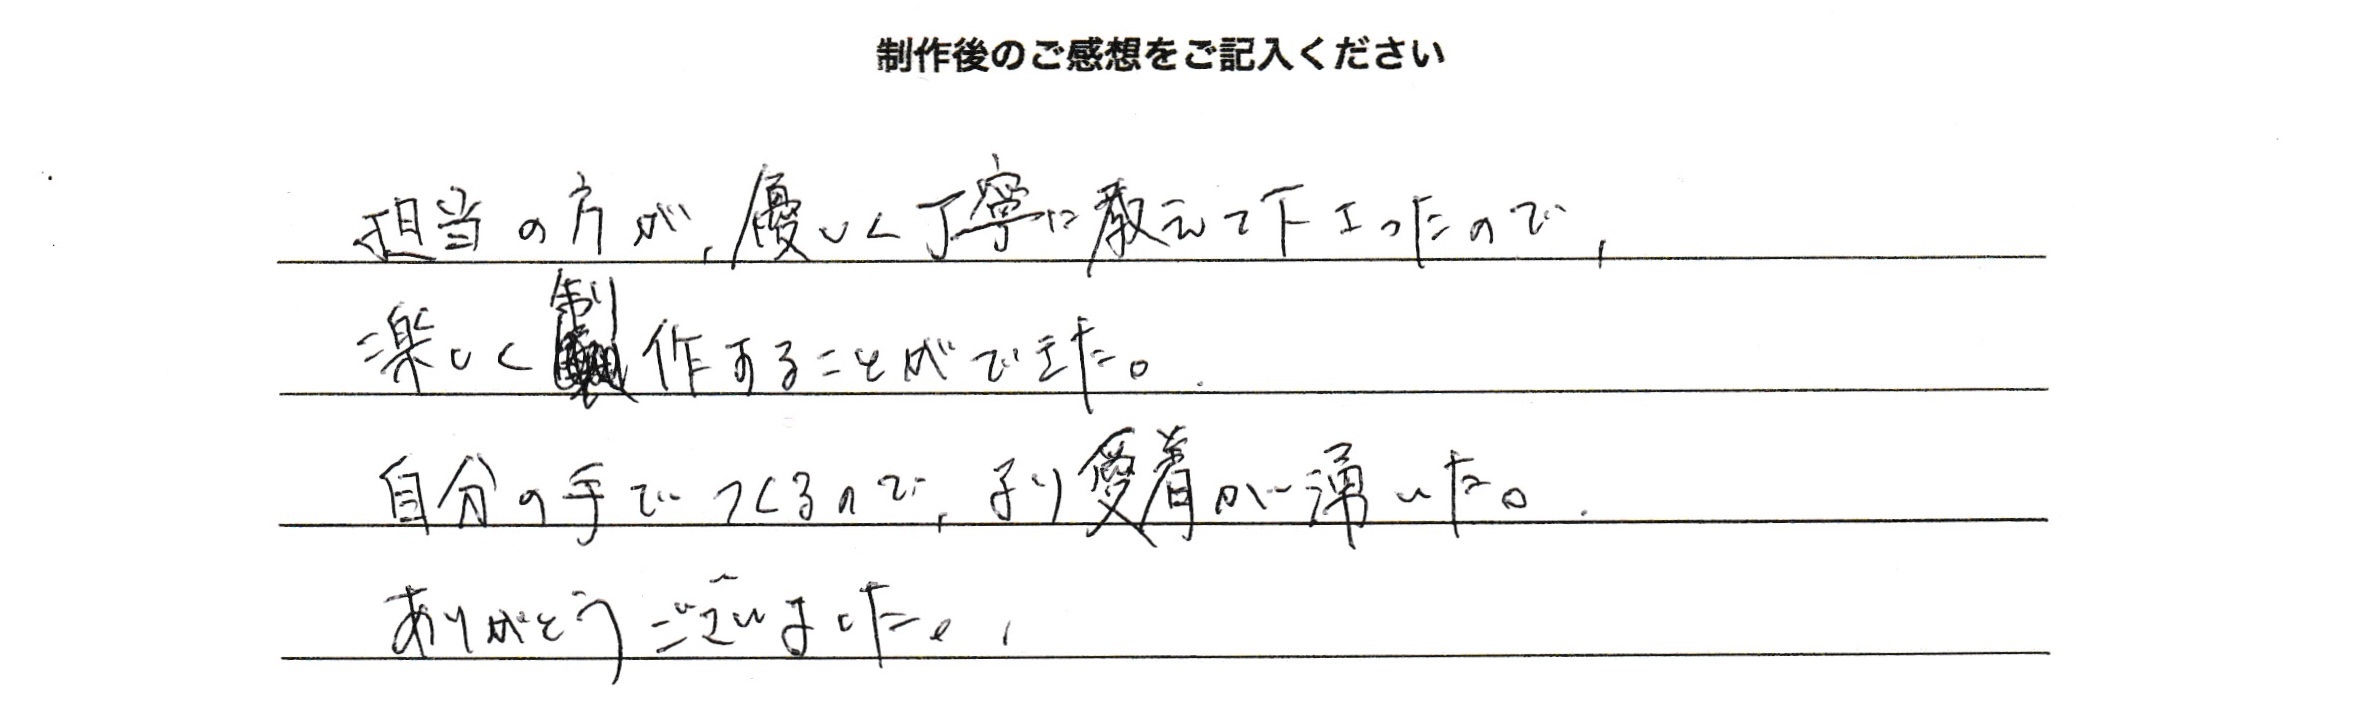 制作後のご感想をご記入ください
担当の方が、優しく丁寧に教えて下さったので、
楽しく制作することができた。
自分の手でつくるので、より愛着が湧いた。
ありがとうございました。